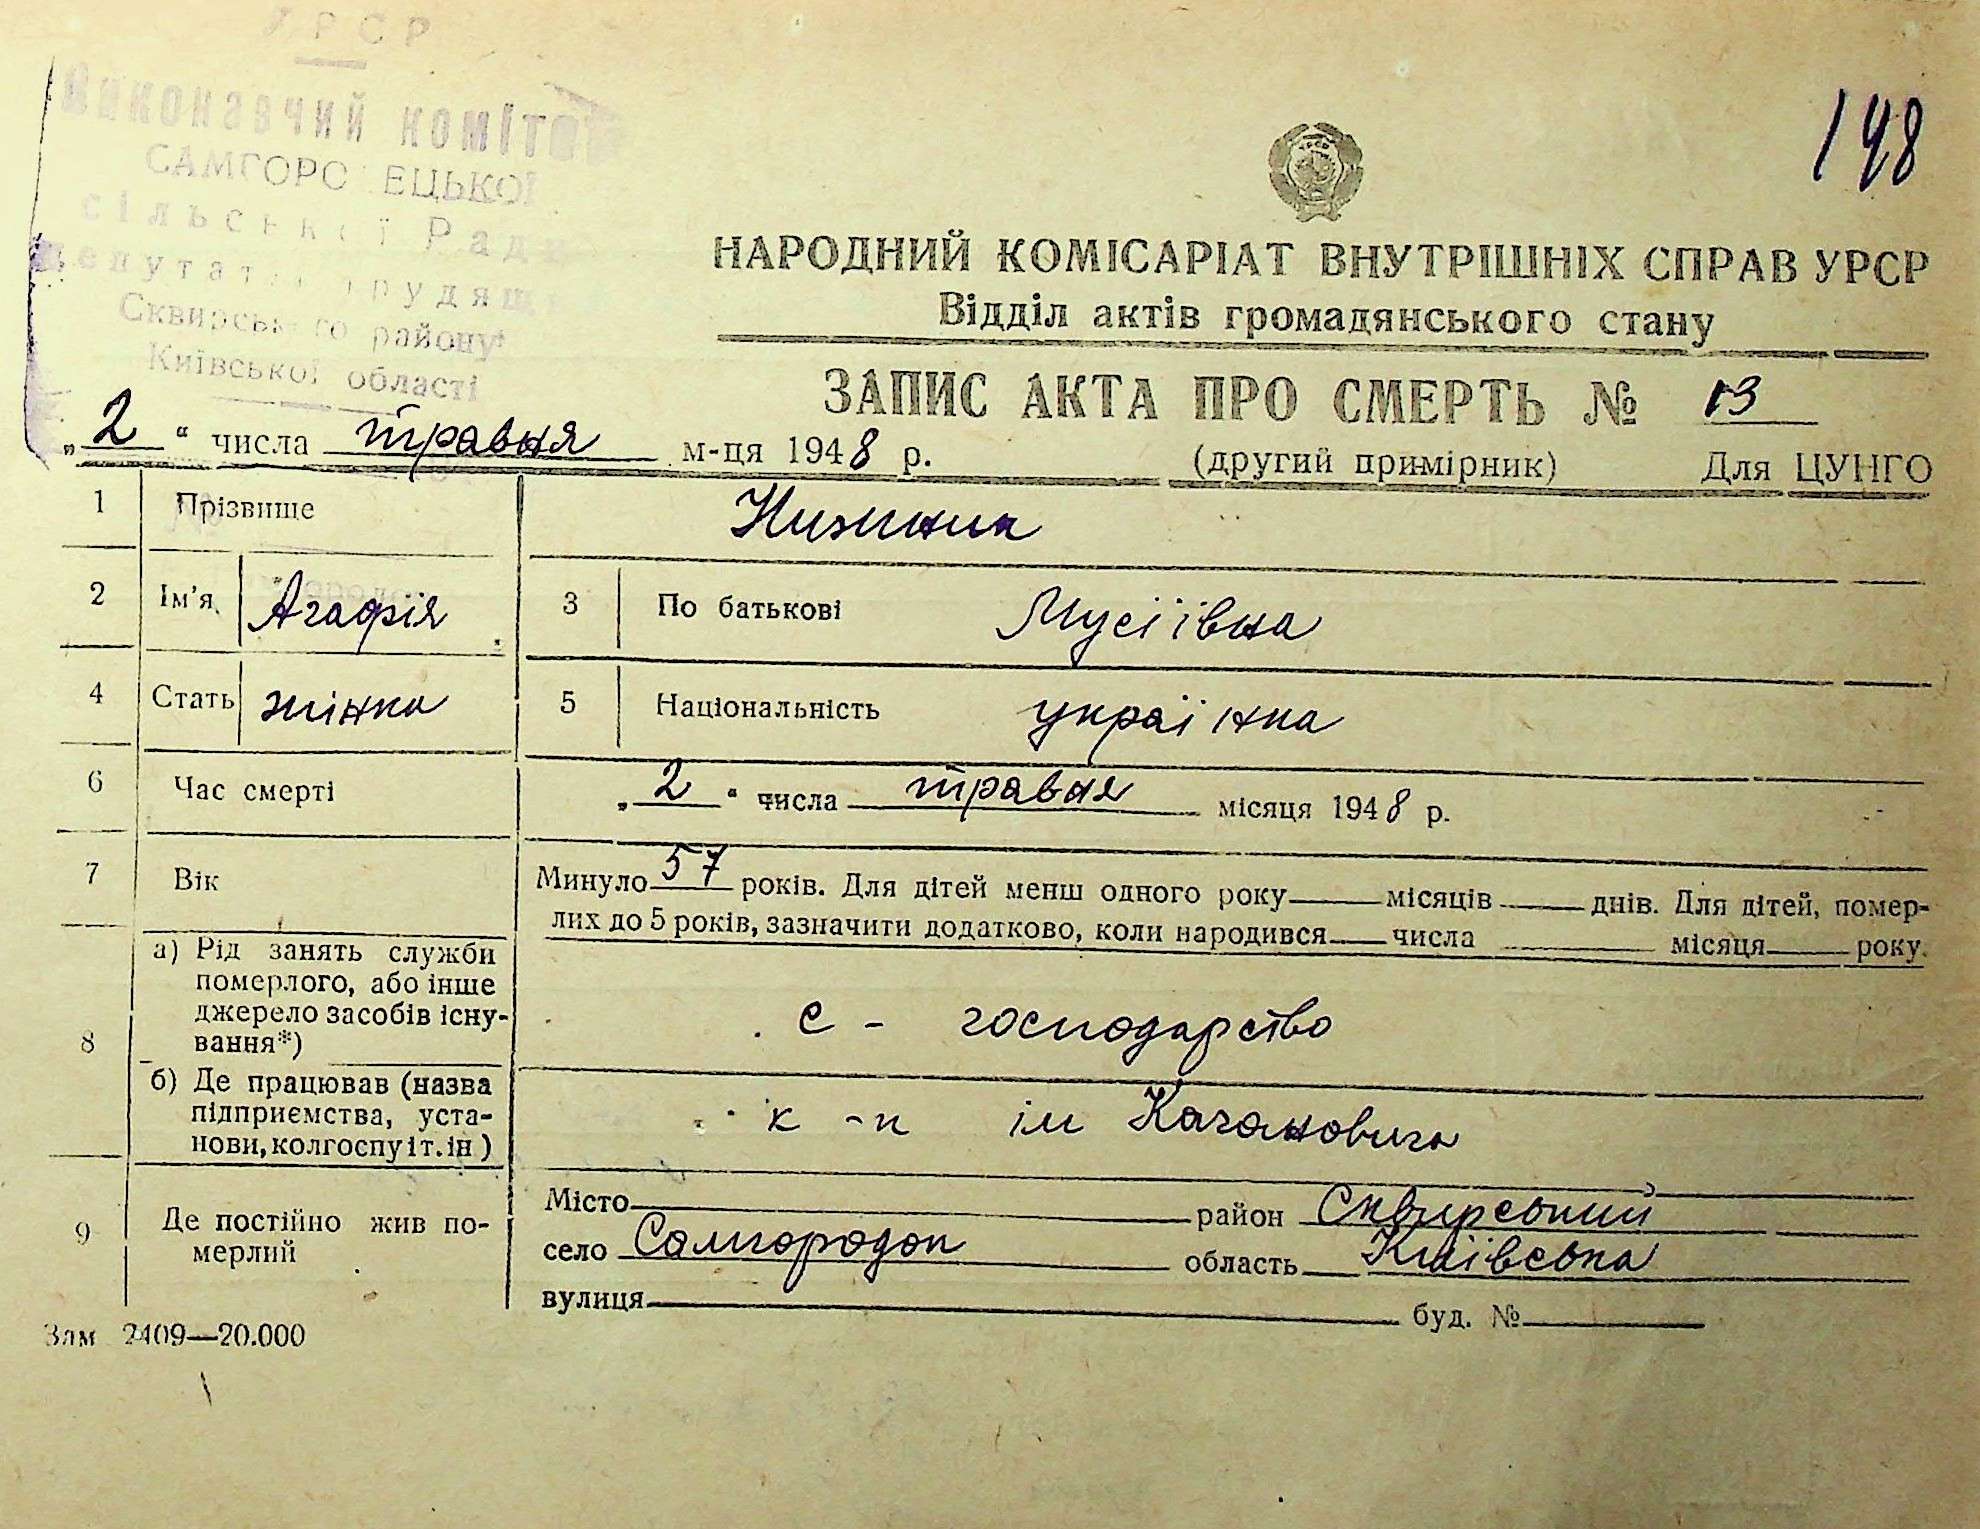 УРСР
Виконавчий комітет
САМГОРОДЕЦЬКОЇ
сільської Ради
депутатів трудящих
Сквирського району
Київської області
148
УРСР
НАРОДНИЙ КОМІСАРІАТ ВНУТРІШНІХ СПРАВ УРСР
Відділ актів громадянського стану
ЗАПИС АКТА ПРО СМЕРТЬ № 13
„2“ числа травня м-ця 1948 р. (другий примірник) Для ЦУНГО
1 Прізвище Нижник
2 Ім'я Агафія 3 По батькові Мусіївна
4 Стать жінка 5 Національність українка
6 Час смерті „2“ числа травня місяця 1948 р.
7 Вік Минуло 57 років. Для дітей менш одного року місяців днів. Для дітей, помер-
лих до 5 років, зазначити додатково, коли народився числа місяця року.
8 а) Рід занять служби
померлого, або інше
джерело засобів існу-
вання*)
с - господарство
б) Де працював (назва
підприємства, уста-
нови, колгоспу і т. ін)
к-п ім Кагановича
9 Де постійно жив по-
мерлий
Місто район Сквирський
село Самгородок область Київська
вулиця буд. №
Зам 2409—20.000